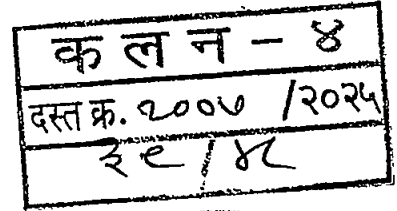 क ल न - ४
दस्त क्र. २००७ /२०२५
३९/४८